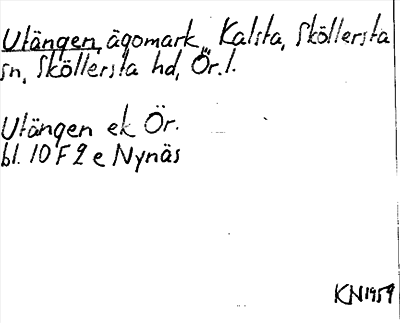 Utängen, ägomark, Kalsta, Sköllersta
sn, Sköllersta hd, Ör.l.
Utängen ek Ör.
bl. 10 F 2 e Nynäs
KN 1959